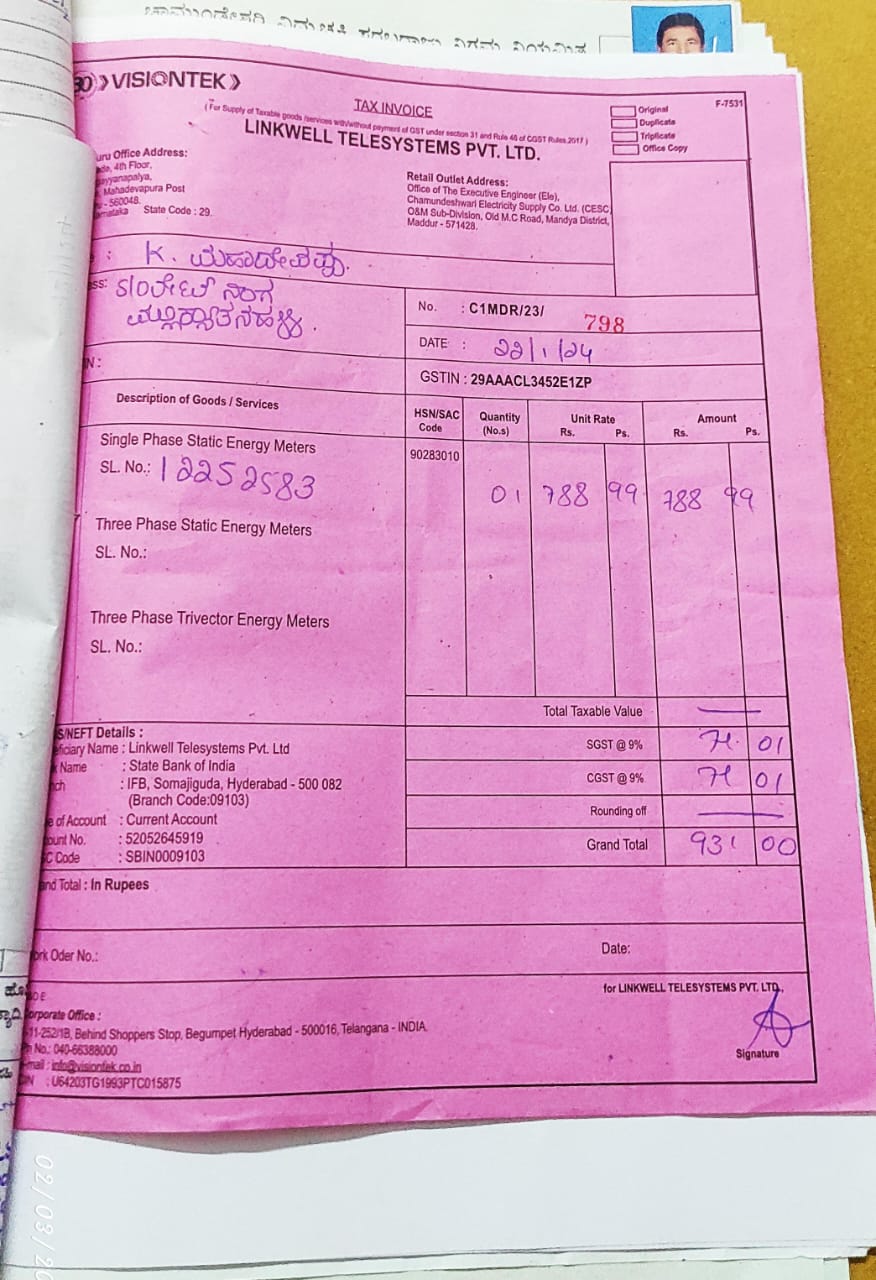 ಚಾಮುಂಡೇಶ್ವರಿ ವಿದ್ಯುಚ್ಛಕ್ತಿ ಸರಬರಾಜು ನಿಗಮ ನಿಯಮಿತ
VISIONTEK
TAX INVOICE
(For Supply of Taxable goods /services with/without payment of GST under section 31 and Rule 46 of CGST Rules,2017)
LINKWELL TELESYSTEMS PVT. LTD.
F-7531
Original
Duplicate
Triplicate
Office Copy
uru Office Address:
4th Floor,
ayyanapalya,
Mahadevapura Post
- 560048.
arnataka State Code : 29.
Retail Outlet Address:
Office of The Executive Engineer (Ele),
Chamundeshwari Electricity Supply Co. Ltd. (CESC)
O&M Sub-Division, Old M.C Road, Mandya District,
Maddur - 571428.
: K. ಮಹಾದೇವಪ್ಪ.
ess: S/o ಲೇಟ್ ನಿಂಗ
No. : C1MDR/23/ 798
DATE : 22/1/24
N :
GSTIN : 29AAACL3452E1ZP
Description of Goods / Services HSN/SAC Code Quantity (No.s) Unit Rate Rs. Ps. Amount Rs. Ps.
Single Phase Static Energy Meters 90283010
SL. No.: 12252583 01 788 99 788 99
Three Phase Static Energy Meters
SL. No.:
Three Phase Trivector Energy Meters
SL. No.:
Total Taxable Value —
S/NEFT Details :
eficiary Name : Linkwell Telesystems Pvt. Ltd
Name : State Bank of India
ch : IFB, Somajiguda, Hyderabad - 500 082
(Branch Code:09103)
e of Account : Current Account
ount No. : 52052645919
C Code : SBIN0009103
SGST @ 9% 71. 01
CGST @ 9% 71 01
Rounding off —
Grand Total 931 00
and Total : In Rupees
ork Oder No.: Date:
for LINKWELL TELESYSTEMS PVT. LTD.,
orporate Office :
-11-252/1B, Behind Shoppers Stop, Begumpet Hyderabad - 500016, Telangana - INDIA.
h No.: 040-66388000
-mail : info@visiontek.co.in
IN : U64203TG1993PTC015875
Signature